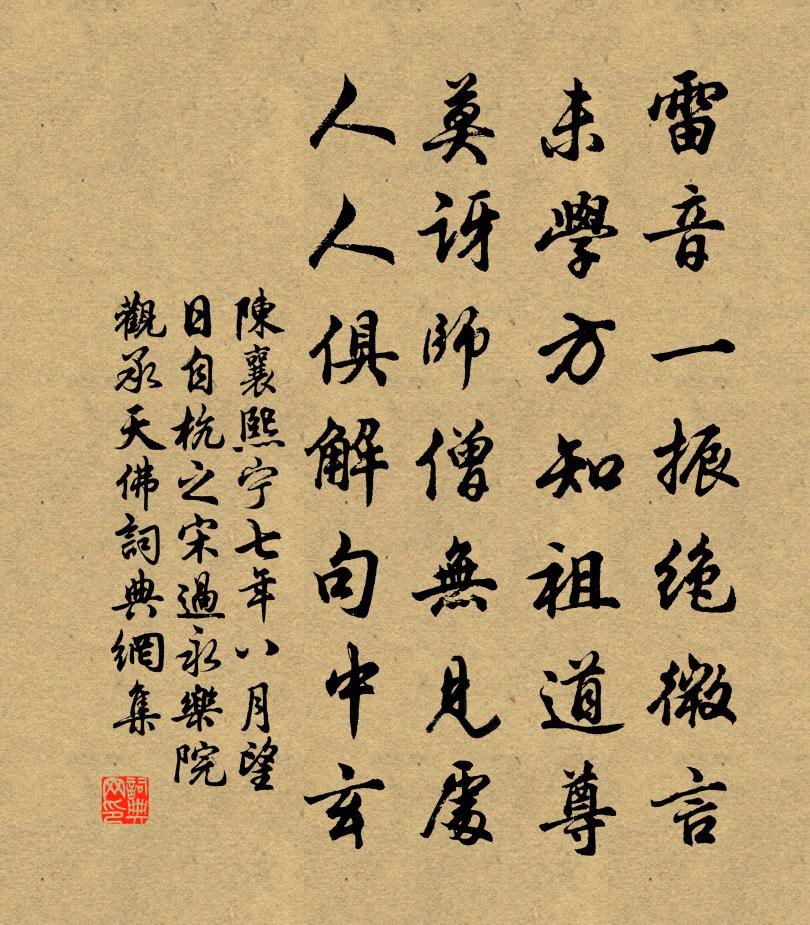 雷音一振绝微言
未學方知祖道尊
莫訝師僧無見處
人人俱解句中玄
陳襄熙宁七年八月望
日自杭之宋過永樂院
觀承天佛詞典網集
詞典
网印